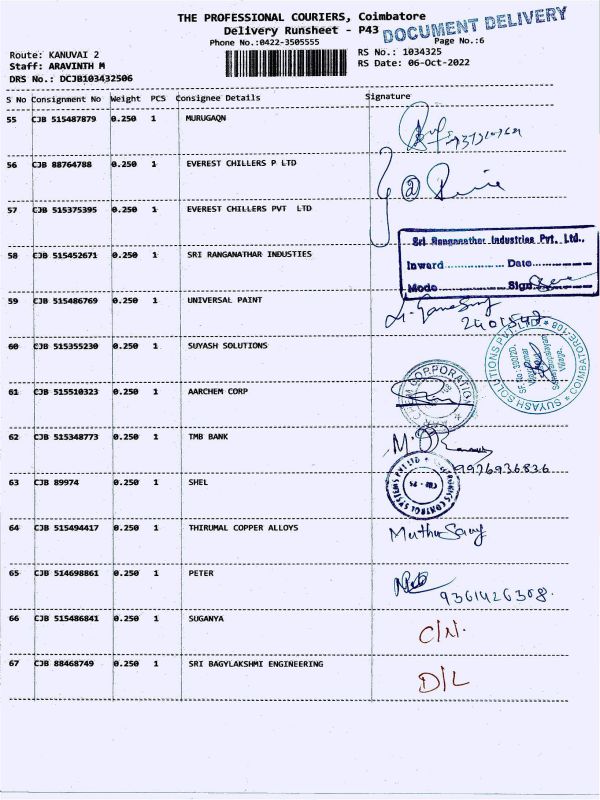 THE PROFESSIONAL COURIERS, Coimbatore
Delivery Runsheet - P43
DOCUMENT DELIVERY
Phone No.:0422-3505555
Page No.:6
Route: KANUVAI 2
RS No.: 1034325
Staff: ARAVINTH M
RS Date: 06-Oct-2022
DRS No.: DCJB103432506
S No Consignment No Weight PCS Consignee Details Signature
55 CJB 515487879 0.250 1 MURUGAQN
56 CJB 88764788 0.250 1 EVEREST CHILLERS P LTD
57 CJB 515375395 0.250 1 EVEREST CHILLERS PVT LTD
58 CJB 515452671 0.250 1 SRI RANGANATHAR INDUSTIES
Sri Ranganathar Industries Pvt. Ltd.,
Inward.............. Date..............
Mode.............. Sign
59 CJB 515486769 0.250 1 UNIVERSAL PAINT
60 CJB 515355230 0.250 1 SUYASH SOLUTIONS
SUYASH SOLUTIONS PVT LTD * COIMBATORE-108 *
61 CJB 515510323 0.250 1 AARCHEM CORP
62 CJB 515348773 0.250 1 TMB BANK
9976936836
63 CJB 89974 0.250 1 SHEL
64 CJB 515494417 0.250 1 THIRUMAL COPPER ALLOYS
65 CJB 514698861 0.250 1 PETER
9361426308.
66 CJB 515486841 0.250 1 SUGANYA C/N.
67 CJB 88468749 0.250 1 SRI BAGYLAKSHMI ENGINEERING D/L